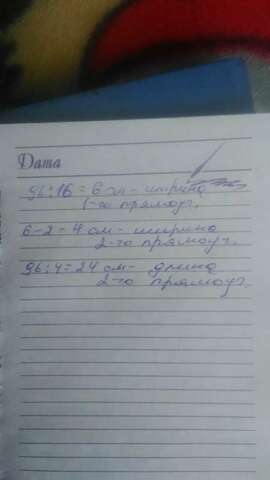 Дата
96:16=6 см- ширина
1-го прямоуг.
6-2=4 см- ширина
2-го прямоуг.
96:4=24 см- длина
2-го прямоуг.